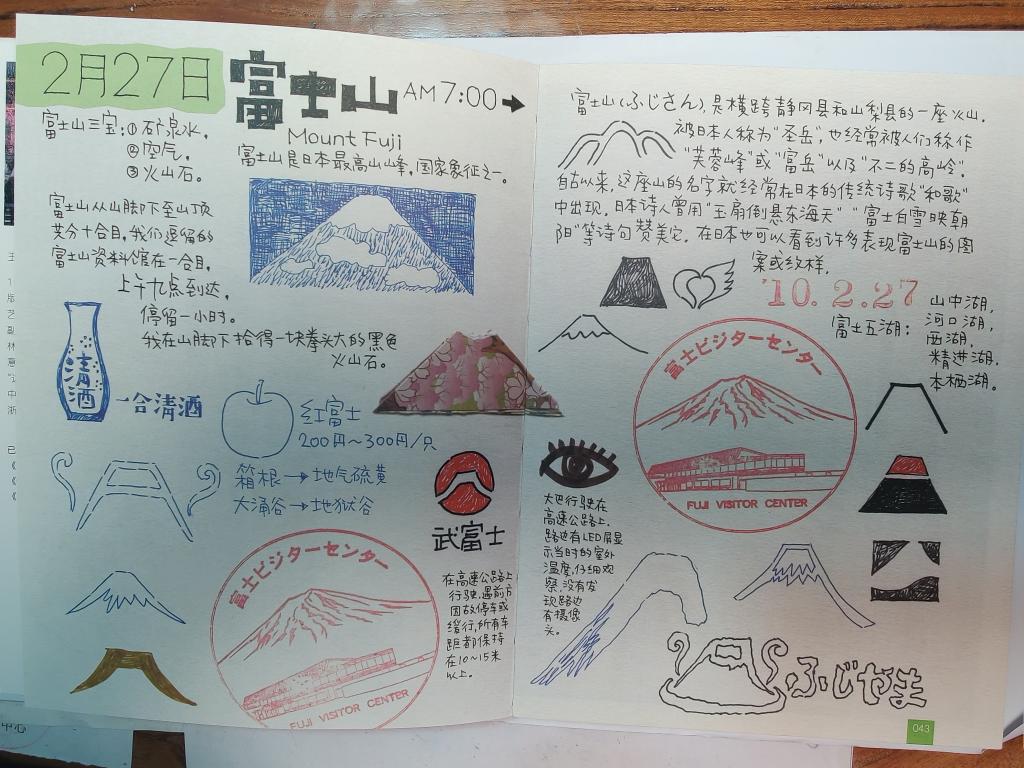 2月27日
富士山
AM 7:00
Mount Fuji
富士山三宝:①矿泉水。
②空气。
③火山石。
富士山是日本最高山峰,国家象征之一。
富士山从山脚下至山顶
共分十合目,我们逗留的
富士山资料馆在一合目。
上午九点到达,
停留一小时。
我在山脚下拾得一块拳头大的黑色
火山石。
清酒
一合清酒
红富士
200円~300円/只
箱根→地气硫黄
大涌谷→地狱谷
武富士
富士ビジターセンター
FUJI VISITOR CENTER
在高速公路上
行驶,遇前方
因故停车或
缓行,所有车
距都保持
在10~15米
以上。
富士山(ふじさん),是横跨静冈县和山梨县的一座火山。
被日本人称为“圣岳”,也经常被人们称作
“芙蓉峰”或“富岳”以及“不二的高岭”。
自古以来,这座山的名字就经常在日本的传统诗歌“和歌”
中出现。日本诗人曾用“玉扇倒悬东海天”“富士白雪映朝
阳”等诗句赞美它。在日本也可以看到许多表现富士山的图
案或纹样。
'10. 2. 27
富士五湖:
山中湖,
河口湖,
西湖,
精进湖,
本栖湖。
富士ビジターセンター
FUJI VISITOR CENTER
大巴行驶在
高速公路上,
路边有LED屏显
示当时的室外
温度,仔细观
察,没有发
现路边
有摄像
头。
ふじやま
043